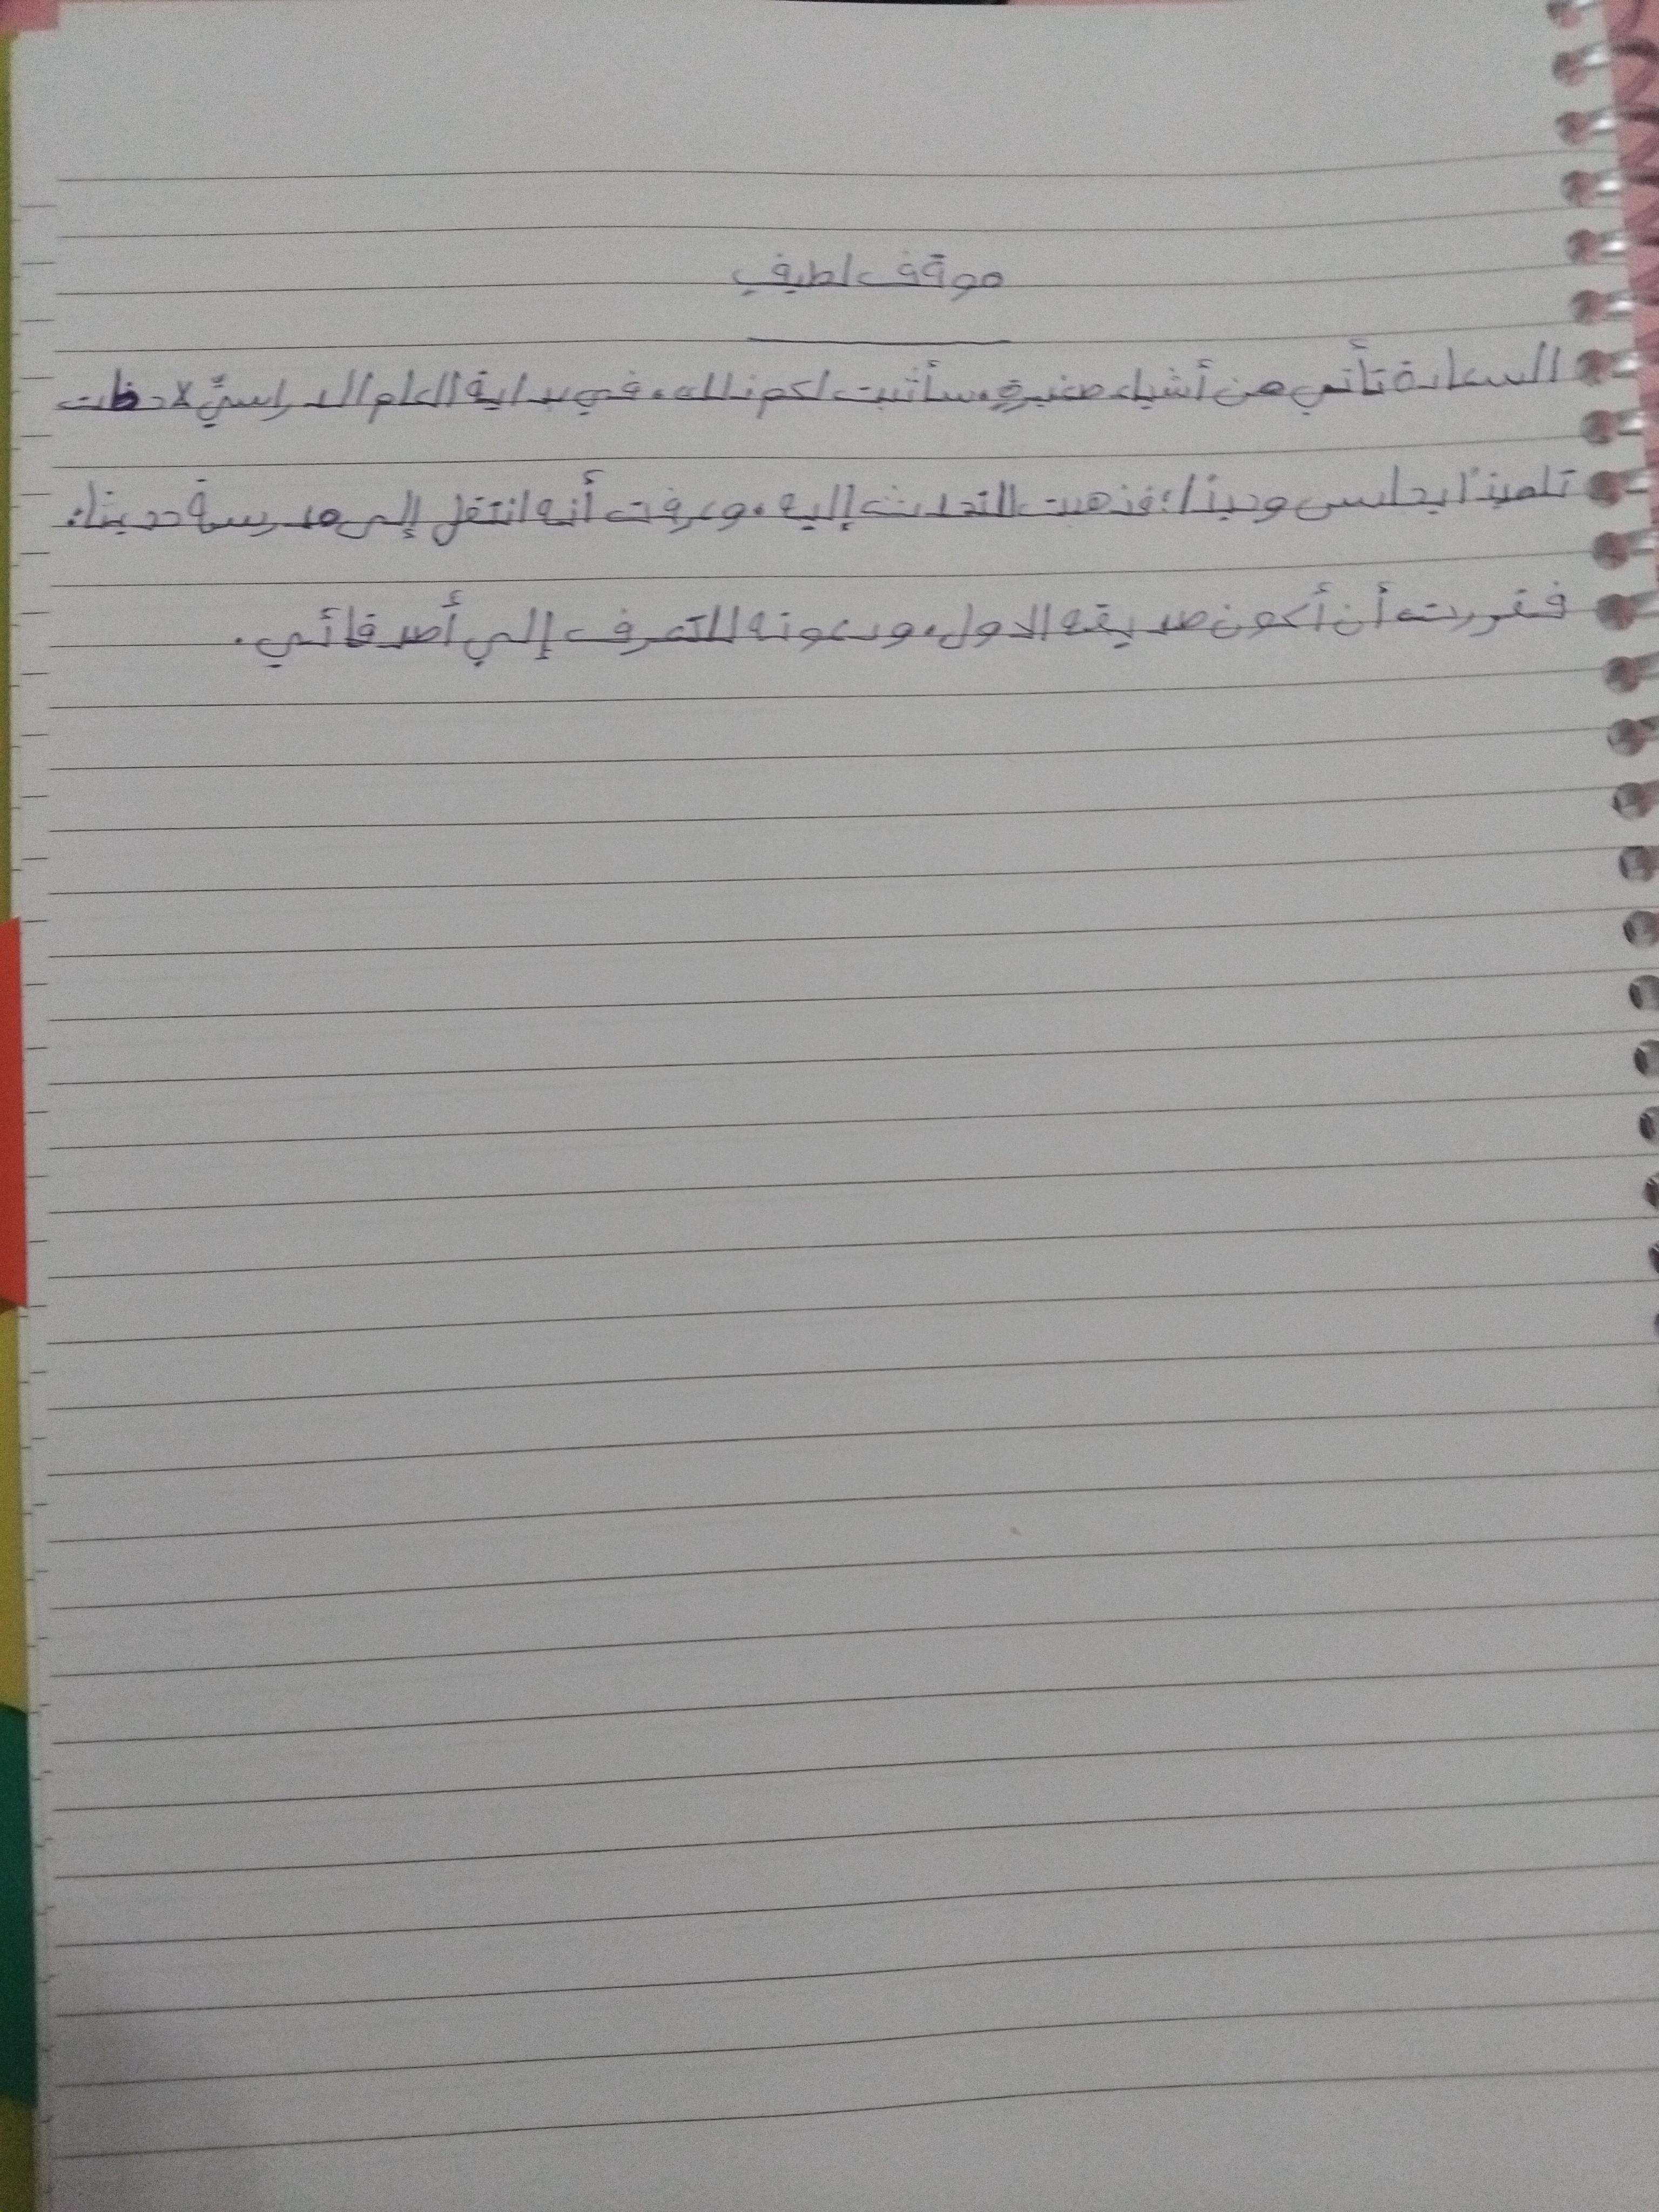 موقف لطيف
السعادة تأتي من أشياء صغيرةٍ، سأثبت لكم ذلك، في بداية العام الدراسيِّ لاحظت
تلميذًا يجلس وحيدًا؛ فذهبت التحدث إليه، وعرفت أنه انتقل إلى مدرسة حديثا،
فقررت أن أكون صديقه الاول، ودعوته للتعرف إلي أصدقائي.